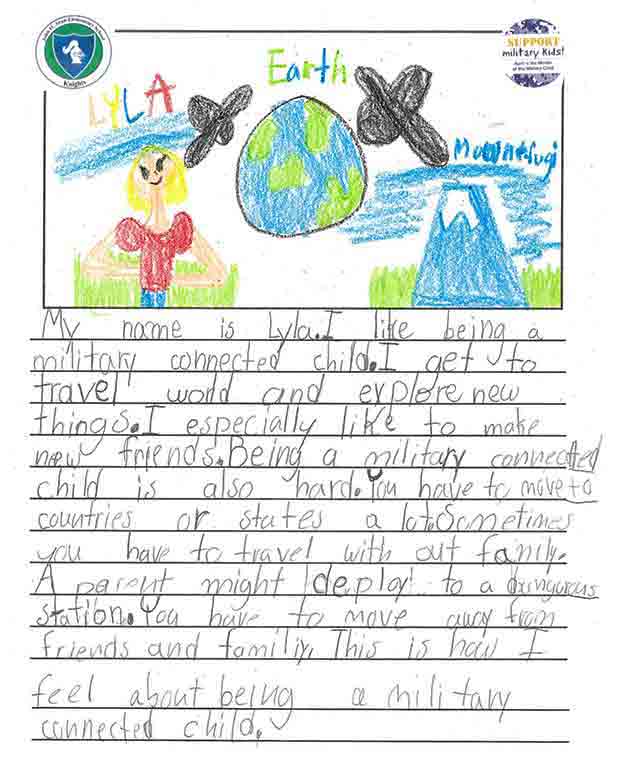 Knights
SUPPORT
military Kids!
April is the Month
of the Military Child
Earth
LYLA
My name is Lyla.I like being a
military connected child.I get to
travel world and explore new
things.I especially like to make
new friends.Being a military connected
child is also hard.You have to move to
countries or states a lot.Sometimes
you have to travel with out family.
A parent might deploy to a
station.You have to move away from
friends and familiy. This is how I
feel about being a military
connected child.